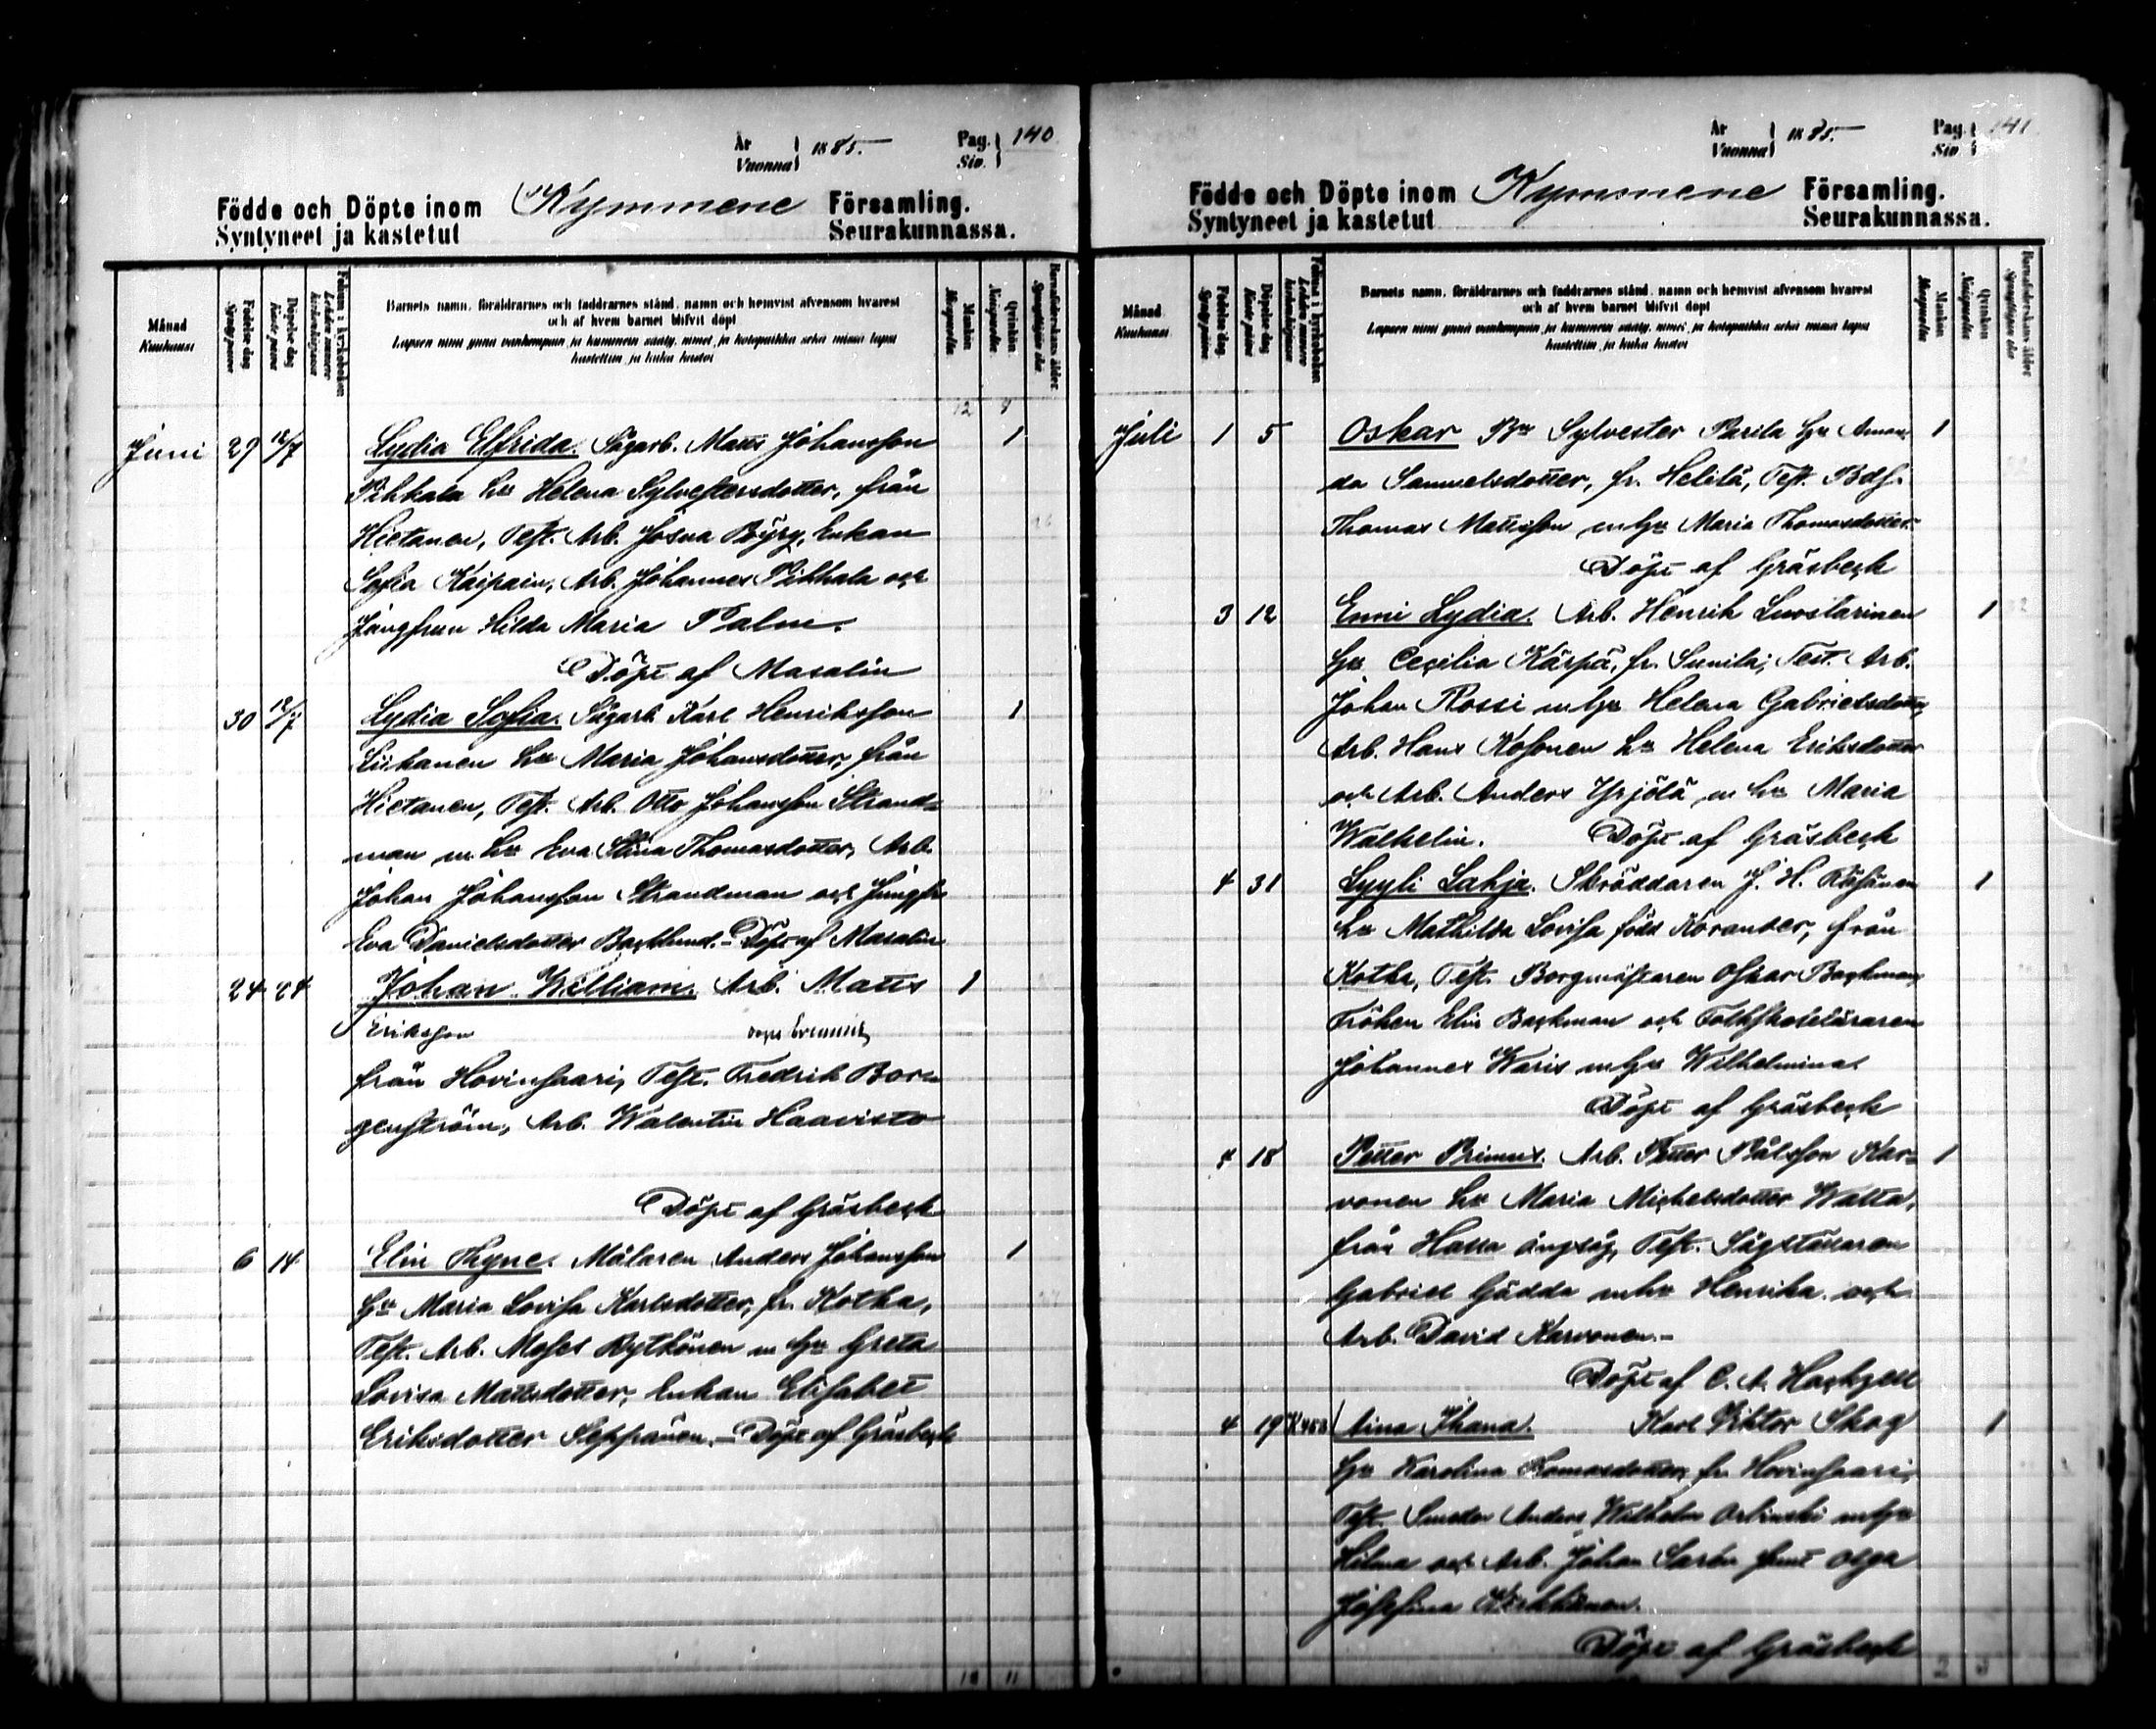 År
Vuonna 1885.
Pag.
Siv. 140
Födde och Döpte inom Kymmene Församling.
Syntyneet ja kastetut Seurakunnassa.
Månad
Kuukausi
Födelse dag
Syntymäpäivä
Döpelse dag
Kaste päivä
Barnets namn, föräldrarnes och faddrarnes stånd, namn och hemvist äfvensom hvarest
och af hvem barnet blifvit döpt
Mankön
Miespuolta
Qvinkön
Naispuolta
Barnaföderskans ålder
12 9
Juni 29 12/7 Lydia Elfrida. Sågarb. Matts Johansson 1
Pihkala hu Helena Sylvestersdotter, från
Hietanen, Test. Arb. Josua Böyry, Enkan
Sofia Kaipain, Arb. Johannes Pihkala och
Jungfrun Hilda Maria Palm.
Döpt af Masalin
30 12/7 Lydia Sofia. Sågarb Karl Henriksson 1
Liikanen hu Maria Johansdotter, från
Hietanen, Test. Arb. Otto Johansson Strand=
man m. hu Eva Stina Thomasdotter, Arb.
Johan Johansson Strandman och Jungfr
Eva Danielsdotter Backlund.- Döpt af Masalin
24 24 Johan William. Arb. Matts 1
Eriksson
från Hovinsaari, Test. Fredrik Bor=
genström, Arb. Walentin Haavisto
Döpt af Gräsbeck
6 14 Elin Thyne. Målaren Anders Johansson 1
hu Maria Lovisa Karlsdotter, fr. Kotka,
Test. Arb. Moses Rytkönen m hu Greta
Lovisa Mattsdotter, Enkan Elisabet
Eriksdotter Seppänen.- Döpt af Gräsbeck
11
År
Vuonna 1885.
Pag.
Siv. 141
Födde och Döpte inom Kymmene Församling.
Syntyneet ja kastetut Seurakunnassa.
Månad
Kuukausi
Födelse dag
Syntymäpäivä
Döpelse dag
Kaste päivä
Barnets namn, föräldrarnes och faddrarnes stånd, namn och hemvist äfvensom hvarest
och af hvem barnet blifvit döpt
Mankön
Miespuolta
Qvinkön
Naispuolta
Barnaföderskans ålder
Juli 1 5 Oskar Bn Sylvester Parila hu Aman=1
da Samuelsdotter, fr. Helilä, Test. Bds.
Thomas Mattsson m hu Maria Thomasdotter.
Döpt af Gräsbeck
3 12 Enni Lydia. Arb. Henrik Luostarinen 1
hu Cecilia Kärpä, fr. Sunila, Test. Arb.
Johan Rossi m hu Helena Gabrielsdotter,
Arb. Hans Kosonen hu Helena Eriksdotter
och Arb. Anders Yrjölä m hu Maria
Walhelin. Döpt af Gräsbeck
4 31 Lyyli Lahja. Skräddaren J. H. Räsänen 1
hu Mathilda Lovisa född Korander, från
Kotka, Test. Borgmästaren Oskar Backman,
Fröken Elin Backman och Folkskoleläraren
Johannes Waris m hu Wilhelmina.
Döpt af Gräsbeck
4 18 Petter Primus. Arb. Petter Pålsson Kar= 1
vonen hu Maria Michelsdotter Watta,
från Halla ångsåg, Test. Sågställaren
Gabriel Gädda m hu Henrika och
Arb. David Karvonen.-
Döpt af C. A. Hackzell
4 19 Aina Ihana. Karl Viktor Skog 1
hu Karolina Thomasdotter, fr. Hovinsaari,
Test. Smeden Anders Wilhelm Orlinski m hu
Hilma och Arb. Johan Sarén samt Olga
Josefina
Döpt af Gräsbeck
2 3